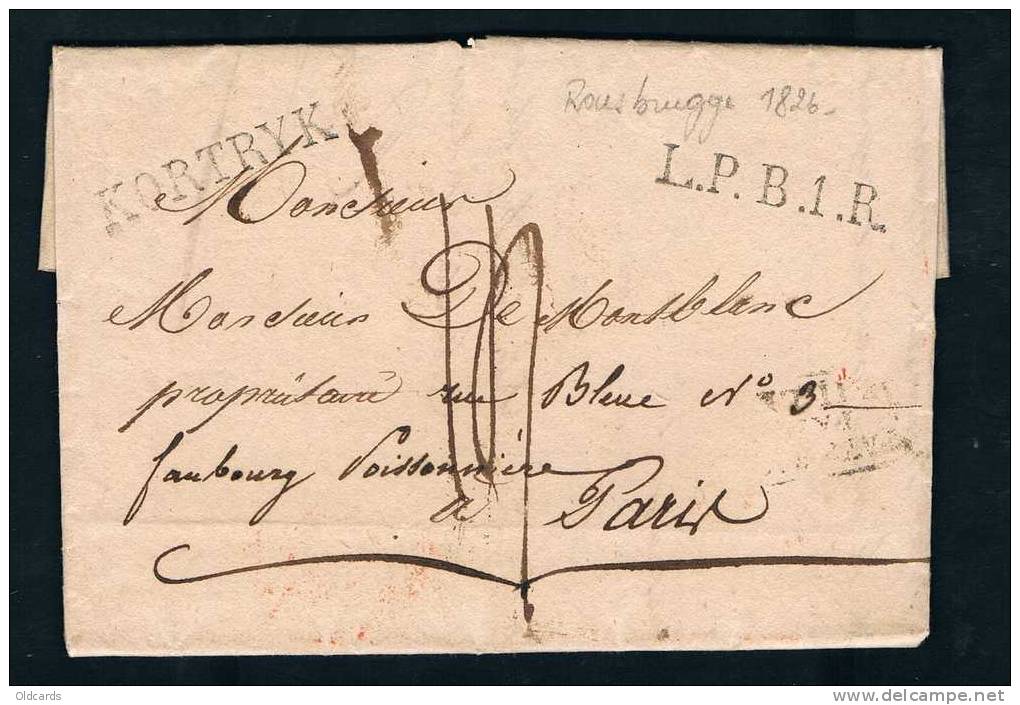 Rousbrugge 1826.
KORTRYK
L.P.B.1.R.
Monsieur
Monsieur De Montblanc
propriétaire rue Bleue No 3
faubourg Poissonnière
a Paris
Oldcards
www.delcampe.net